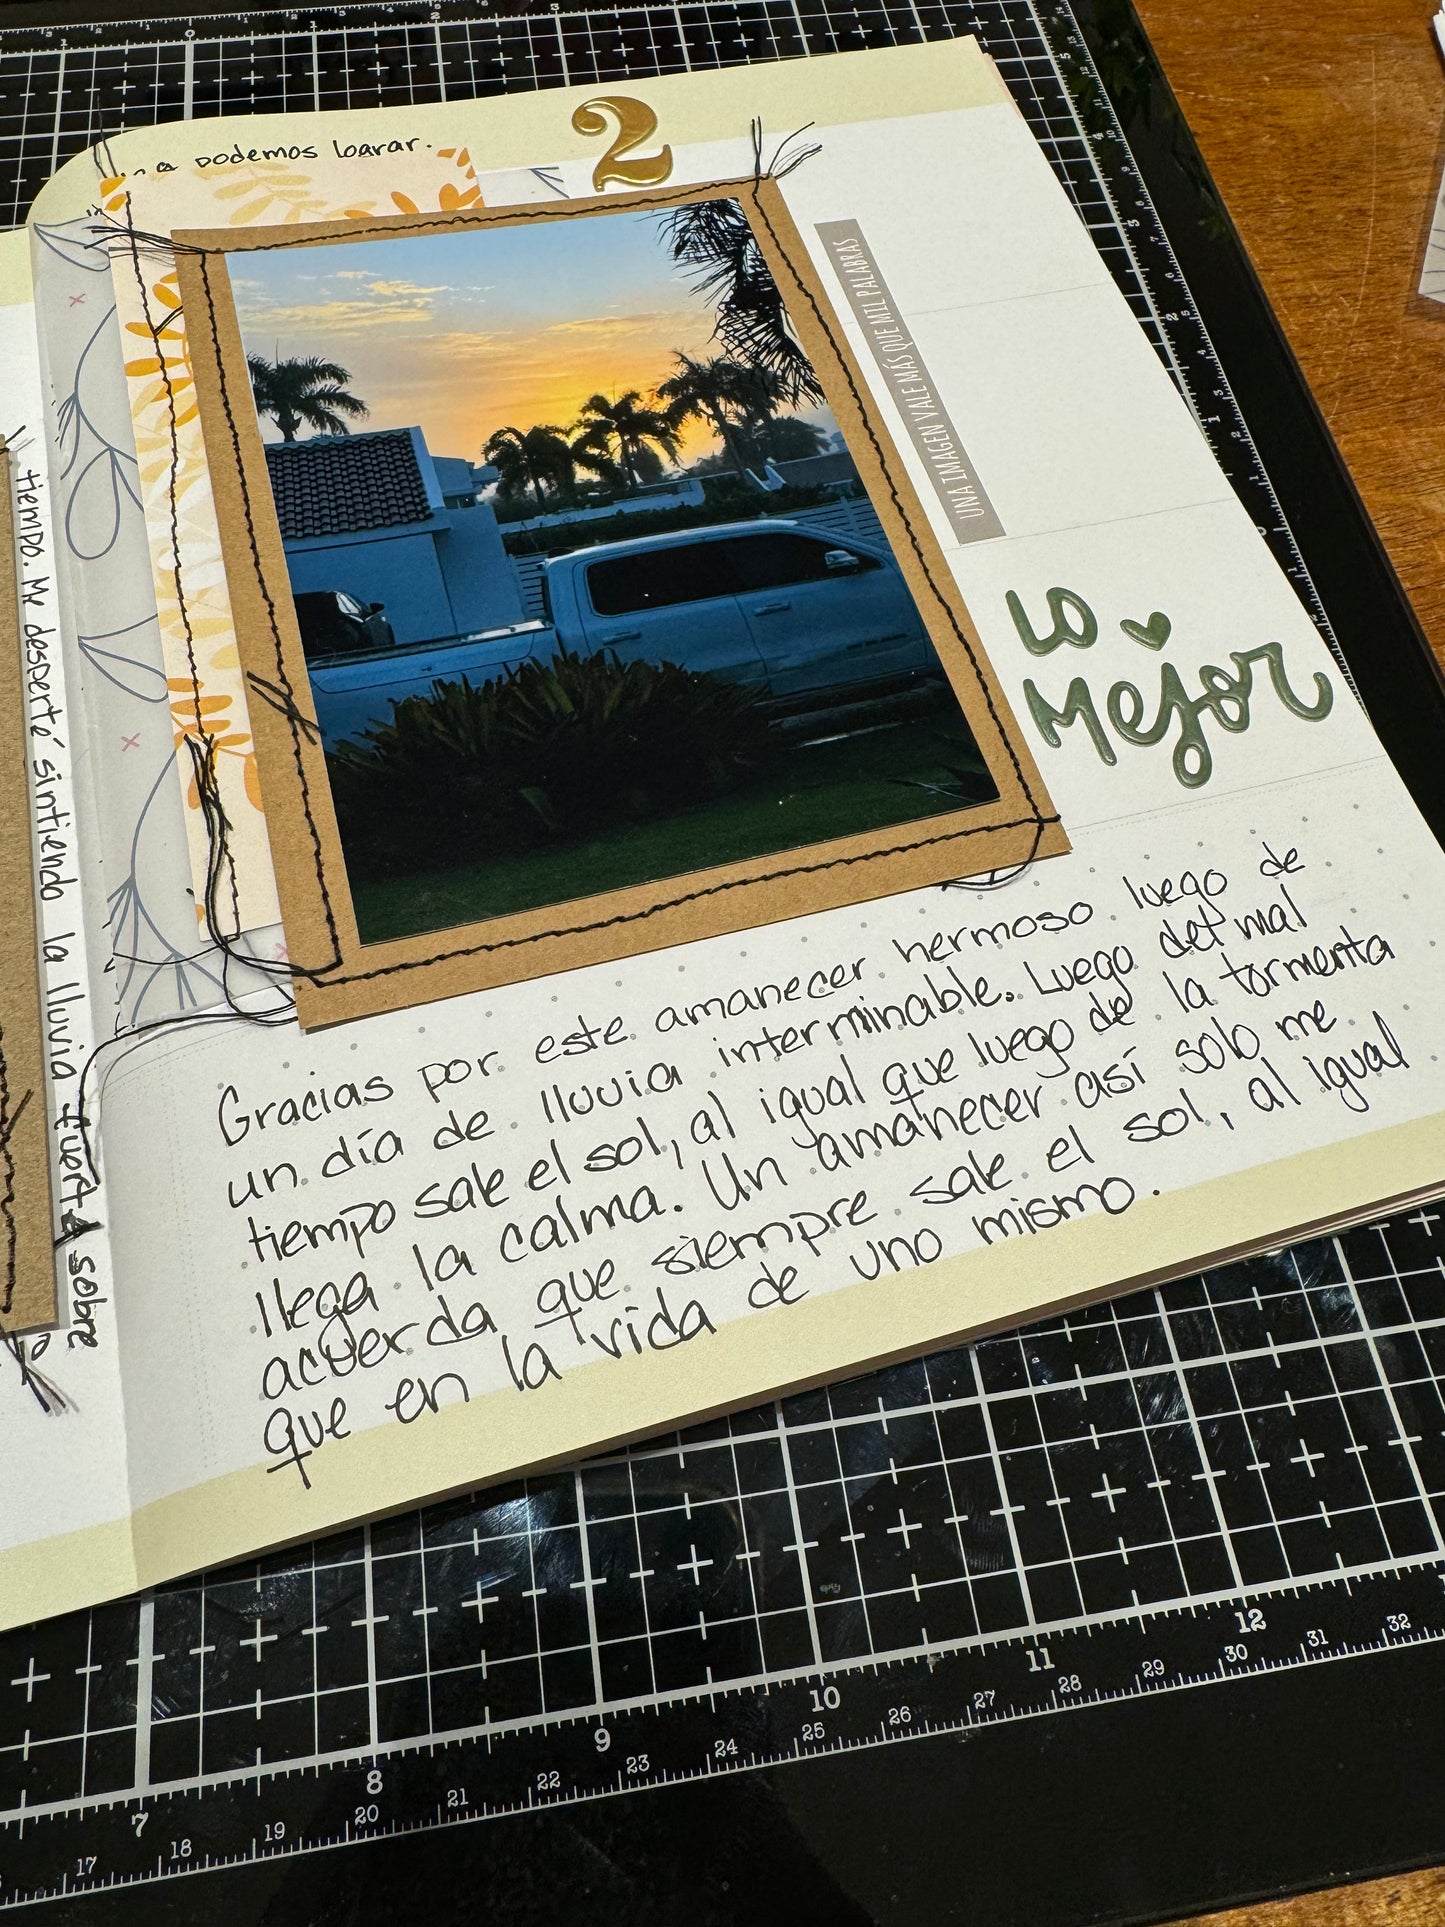 a podemos
2
UNA IMAGEN VALE MÁS QUE MIL PALABRAS
LO
MEJOR
tiempo. Me desperté sintiendo la lluvia fuerte sobre
Gracias por este amanecer hermoso luego de
un día de lluvia interminable. Luego del mal
tiempo sale el sol, al igual que luego de la tormenta
llega la calma. Un amanecer así solo me
acuerda que siempre sale el sol, al igual
que en la vida de uno mismo.
7
8
9
10
11
12
17
18
19
20
21
22
23
24
25
26
27
28
29
30
31
32